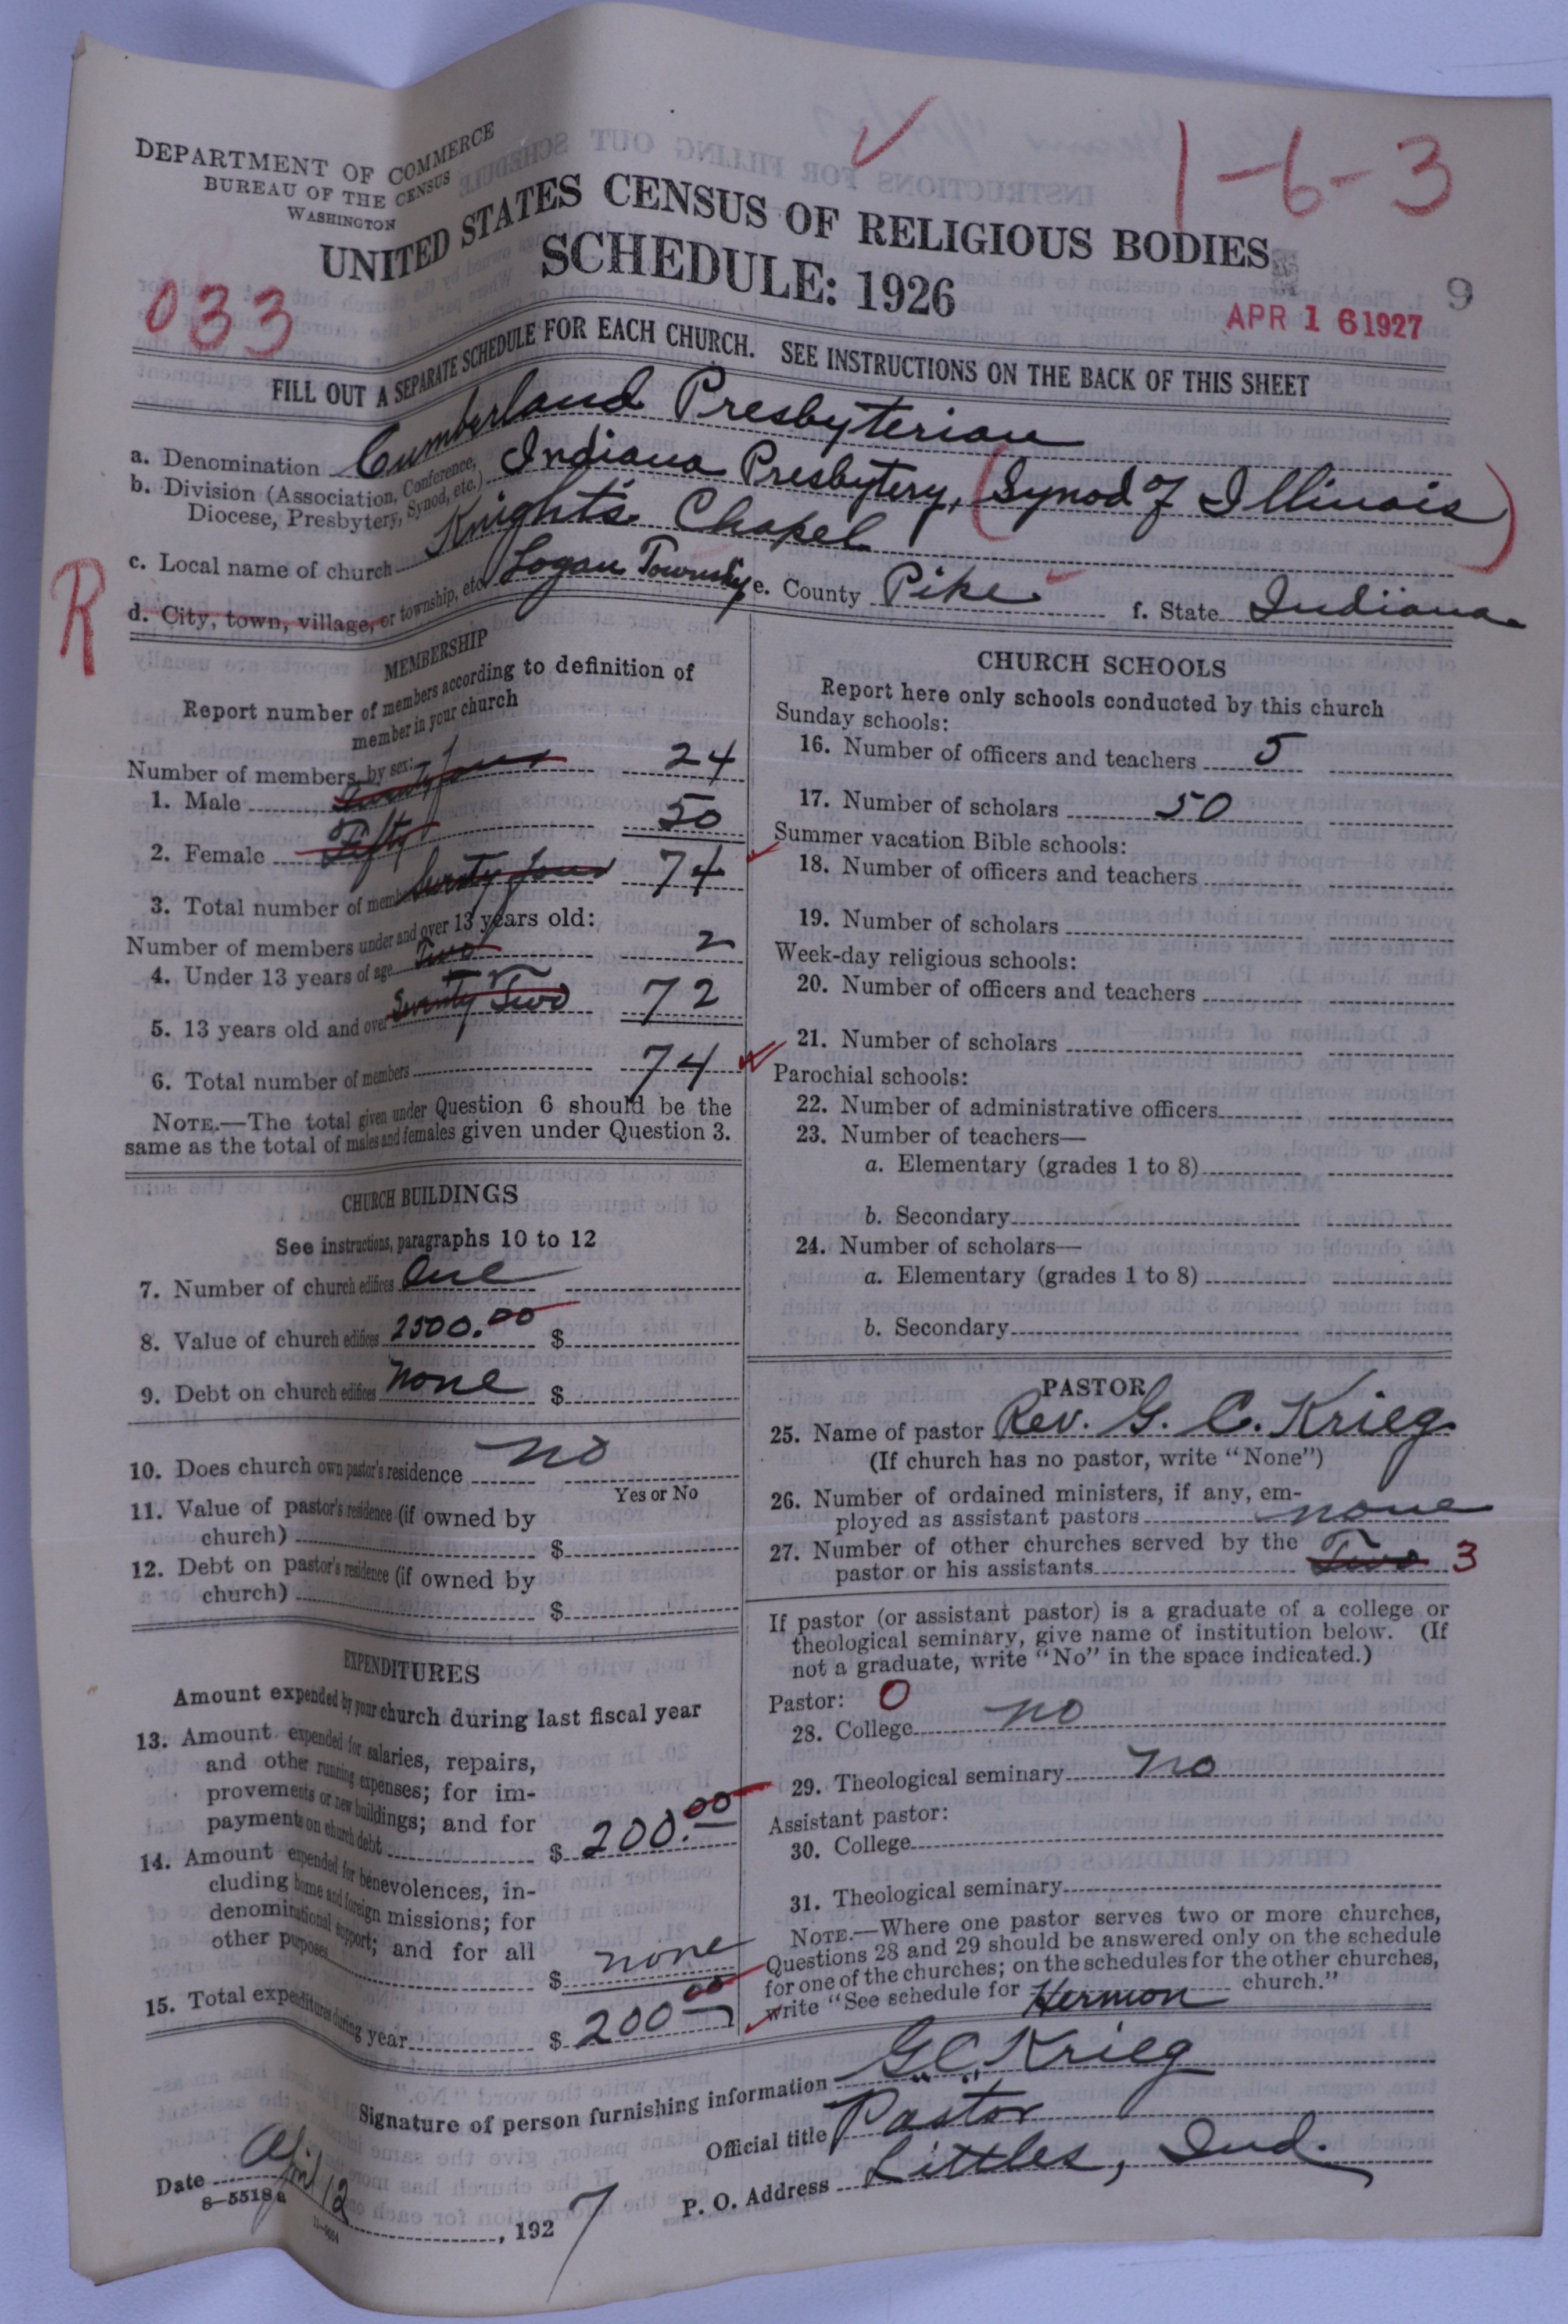 DEPARTMENT OF COMMERCE
BUREAU OF THE CENSUS
WASHINGTON
1-6-3
UNITED STATES CENSUS OF RELIGIOUS BODIES
SCHEDULE: 1926
9
033
APR 16 1927
FILL OUT A SEPARATE SCHEDULE FOR EACH CHURCH. SEE INSTRUCTIONS ON THE BACK OF THIS SHEET
a. Denomination Cumberland Presbyterian
b. Division (Association, Conference, Diocese, Presbytery, Synod, etc.) Indiana Presbytery, (Synod of Illinois)
c. Local name of church Knight's Chapel
R
d. City, town, village, or township, etc. Logan Township e. County Pike f. State Indiana
MEMBERSHIP
Report number of members according to definition of
member in your church
Number of members, by sex:
1. Male Twenty four 24
2. Female Fifty 50
3. Total number of members Seventy four 74
Number of members under and over 13 years old:
4. Under 13 years of age Two 2
5. 13 years old and over Seventy Two 72
6. Total number of members 74
NOTE.—The total given under Question 6 should be the
same as the total of males and females given under Question 3.
CHURCH BUILDINGS
See instructions, paragraphs 10 to 12
7. Number of church edifices One
8. Value of church edifices 2500.00 $
9. Debt on church edifices none $
10. Does church own pastor's residence no
Yes or No
11. Value of pastor's residence (if owned by
church) $
12. Debt on pastor's residence (if owned by
church) $
EXPENDITURES
Amount expended by your church during last fiscal year
13. Amount expended for salaries, repairs,
and other running expenses; for im-
provements or new buildings; and for
payments on church debt $ 200.00
14. Amount expended for benevolences, in-
cluding home and foreign missions; for
denominational support; and for all
other purposes $ none
15. Total expenditures during year $ 200.00
CHURCH SCHOOLS
Report here only schools conducted by this church
Sunday schools:
16. Number of officers and teachers 5
17. Number of scholars 50
Summer vacation Bible schools:
18. Number of officers and teachers
19. Number of scholars
Week-day religious schools:
20. Number of officers and teachers
21. Number of scholars
Parochial schools:
22. Number of administrative officers
23. Number of teachers—
a. Elementary (grades 1 to 8)
b. Secondary
24. Number of scholars—
a. Elementary (grades 1 to 8)
b. Secondary
PASTOR
25. Name of pastor Rev. G. C. Krieg
(If church has no pastor, write "None")
26. Number of ordained ministers, if any, em-
ployed as assistant pastors none
27. Number of other churches served by the
pastor or his assistants Two 3
If pastor (or assistant pastor) is a graduate of a college or
theological seminary, give name of institution below. (If
not a graduate, write "No" in the space indicated.)
Pastor: 0
28. College no
29. Theological seminary no
Assistant pastor:
30. College
31. Theological seminary
NOTE.—Where one pastor serves two or more churches,
Questions 28 and 29 should be answered only on the schedule
for one of the churches; on the schedules for the other churches,
write "See schedule for Hermon church."
Signature of person furnishing information G. C. Krieg
Official title Pastor
Date April 12, 1927 P. O. Address Littles, Ind.
8-5518a